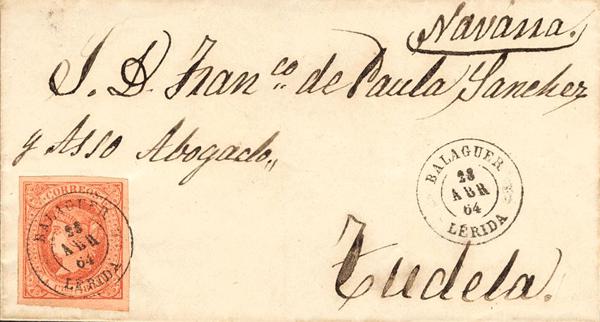 Navarra.
S. D. Fran.co de Paula Sanchez
y Asso Abogado,,
BALAGUER
28
ABR
64
LERIDA
CORREOS
BALAGUER
28
ABR
64
LERIDA
Tudela.